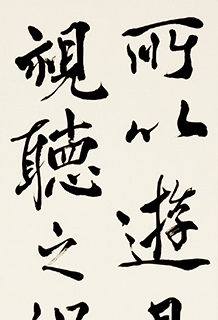 所以遊
視聽之